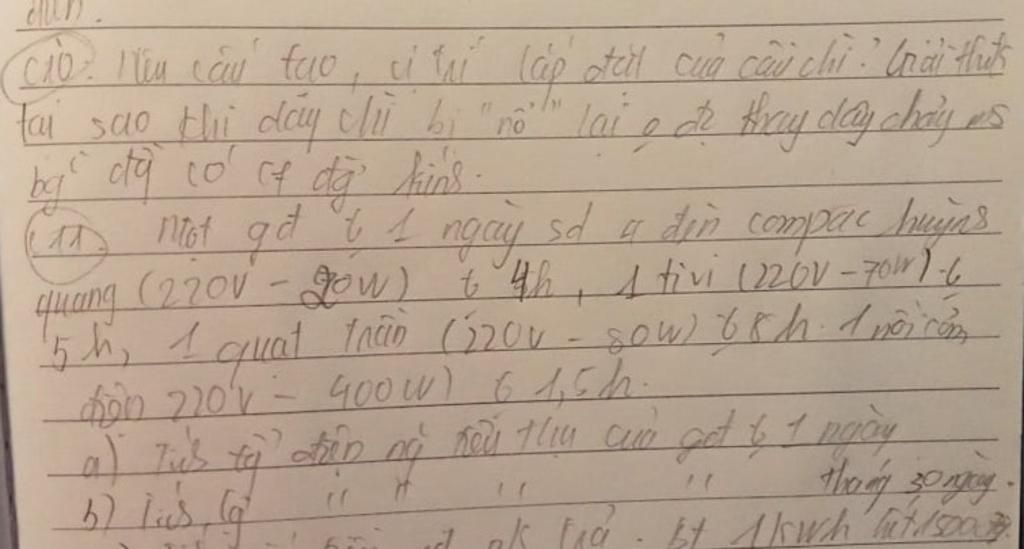 C10. Nêu cấu tạo, vị trí lắp đặt của cầu chì? Giải thích
tại sao khi dây chì bị "nổ" lại o đc thay dây chảy ms
bg dây có
C11. Một gđ tr 1 ngày sd 4 đèn compac huỳnh
quang (220V - 20W) tr 4h, 1 tivi (220V - 70W) tr
5h, 1 quạt trần (220V - 80W) tr 8h. 1 nồi cơm
điện 220V - 400W) tr 1,5h.
a) Tính điện năng tiêu thụ của gđ tr 1 ngày
b) Tính " " " " tháng 30 ngày.
trả. bt 1kWh